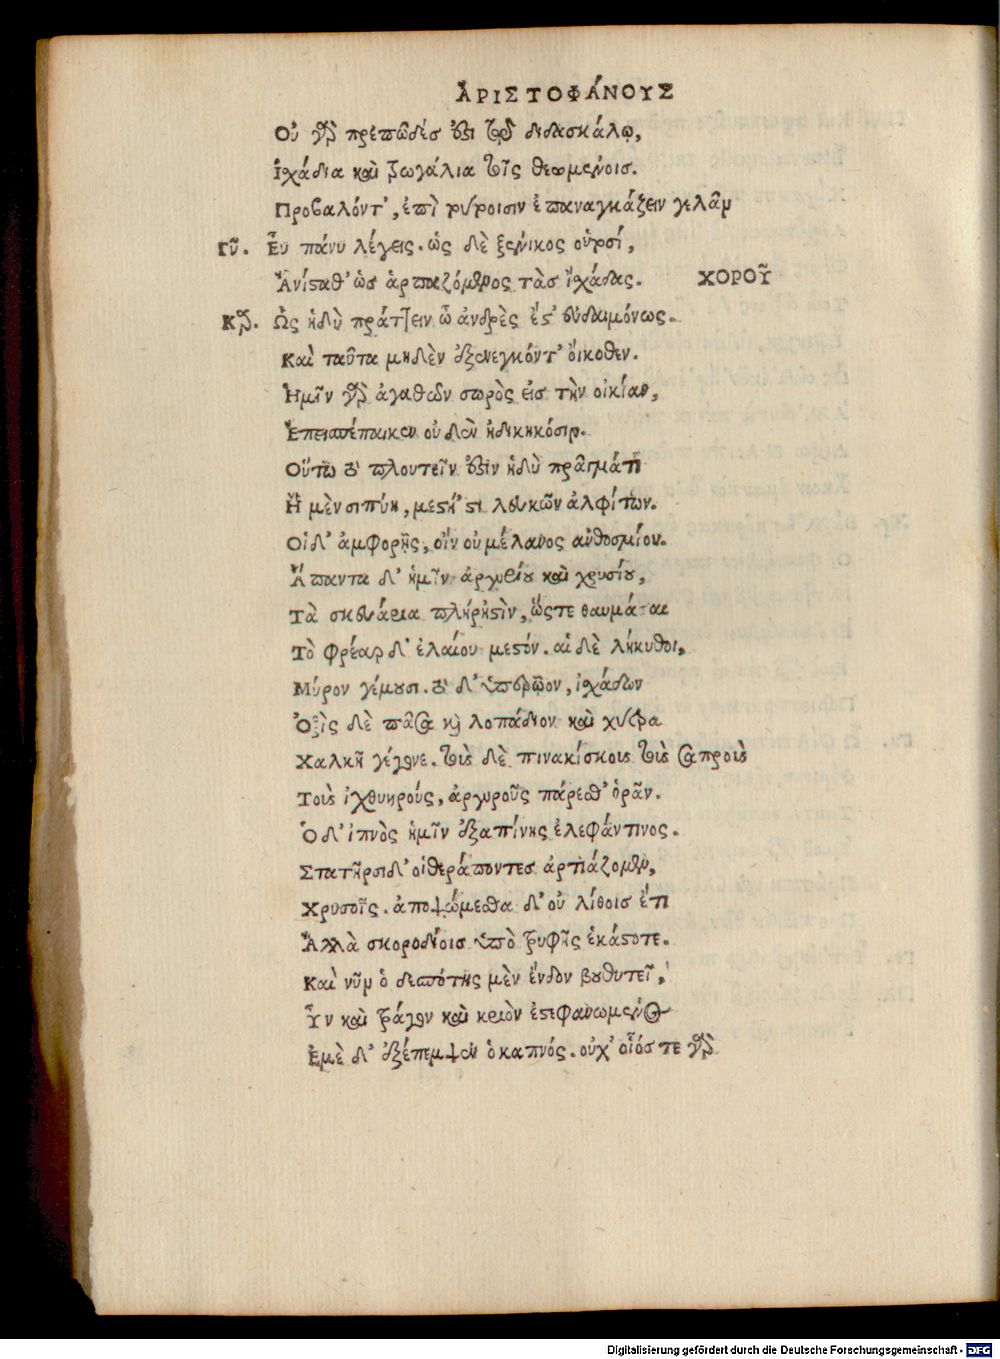 ἈΡΙΣΤΟΦΆΝΟΥΣ
Οὐ γὰρ πρεπῶδές ἐστι τῷ διδασκάλῳ,
Ἰχάδια καὶ τρωγάλια τοῖς θεωμένοισ.
Προβαλόντ', ἐπὶ τούτοισιν ἐπαναγκάζειν γελᾶν
Γῦ. Εὖ πάνυ λέγεις. ὡς δὲ ξένικος οὑτοσί,
Ἀνίσταθ' ὡσ ἁρπαζόμενος τὰσ ἰχάδας. ΧΟΡΟΥ͂
Κρ. Ὡς ἡδὺ πράττειν ὦ ἀνδρὲς ἔστ' εὐδαιμόνως.
Καὶ ταῦτα μηδὲν ἐξενεγκόντ' ὄικοθεν.
Ἡμῖν γὰρ ἀγαθῶν σωρὸς εἰσ τὴν οἰκίαν,
Ἐπεισπέπαικεν οὐδὲν ἠδικηκόσιν.
Οὕτω τὸ πλουτεῖν ἐστὶν ἡδὺ πρᾶγμάτι
Ἡ μὲν σιπύη, μεστή 'στι λευκῶν ἀλφίτων.
Οἱ δ' ἀμφορῆς, οἴνου μέλανος ἀνθοσμίου.
Ἅπαντα δ' ἡμῖν ἀργυρίου καὶ χρυσίου,
Τὰ σκευάρια πλήρη 'στὶν, ὥςτε θαυμάσαι
Τὸ φρέαρ δ' ἐλαίου μεστόν. αἱ δὲ λήκυθοι,
Μύρον γέμουσι. τὸ δ' ὑπερῷον, ἰχάδων
Ὀξὶς δὲ πᾶσα καὶ λοπάδιον καὶ χύτρα
Χαλκῆ γέγονε. τοὺς δὲ πινακίσκους τοὺς σαπροὺς
Τοὺς ἰχθυηρούς, ἀργυροῦς πάρεσθ' ὁρᾶν.
Ὁ δ' ἰπνὸς ἡμῖν ἐξαπίνης ἐλεφάντινος.
Στατῆρσι δ' οἱ θεράποντεσ ἀρτιάζομεν,
Χρυσοῖς. ἀποψώμεσθα δ' οὐ λίθοισ ἔτι
Ἀλλὰ σκοροδίοισ ὑπὸ τρυφῆς ἑκάστοτε.
Καὶ νῦν ὁ δεσπότης μὲν ἔνδον βουθυτεῖ,
Ὗν καὶ τράγον καὶ κριὸν ἐστεφανωμένος
Ἐμὲ δ' ἐξέπεμψεν ὁ καπνός. οὐχ' οἷός τε γὰρ
Digitalisierung gefördert durch die Deutsche Forschungsgemeinschaft - DFG